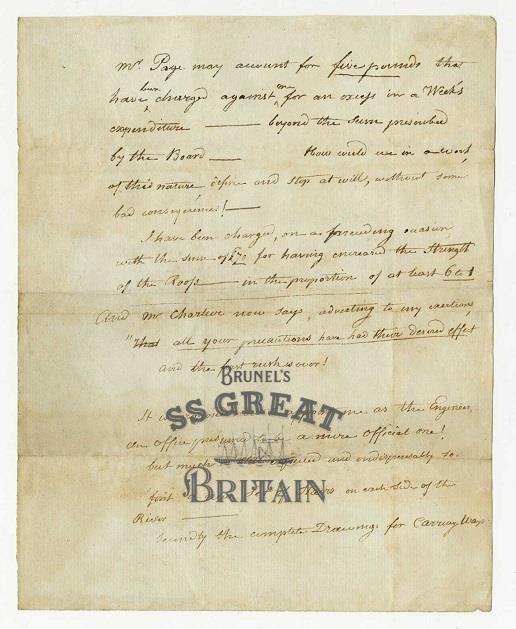 Mr. Page may account for five pounds that
have been charged against me for an excess in a Week's
expenditure — beyond the sum prescribed
by the Board — How could we in a work
of this nature, define and stop at will, without some
bad consequences! —
I have been charged, on a preceeding occasion,
with the sum of £70 for having encreased the Strength
of the Roofs — in the proportion of at least 6 to 1
And Mr Charlier now says, adverting to my exertions,
"that all your precautions have had their desired effect
and the first rush is over!
BRUNEL'S
SS GREAT
BRITAIN
It is me as the Engineer,
an Office a mere Official one!
but much and indispensably so
first on each side of the
River —
Secondly the complete Drawings for Carriage Ways